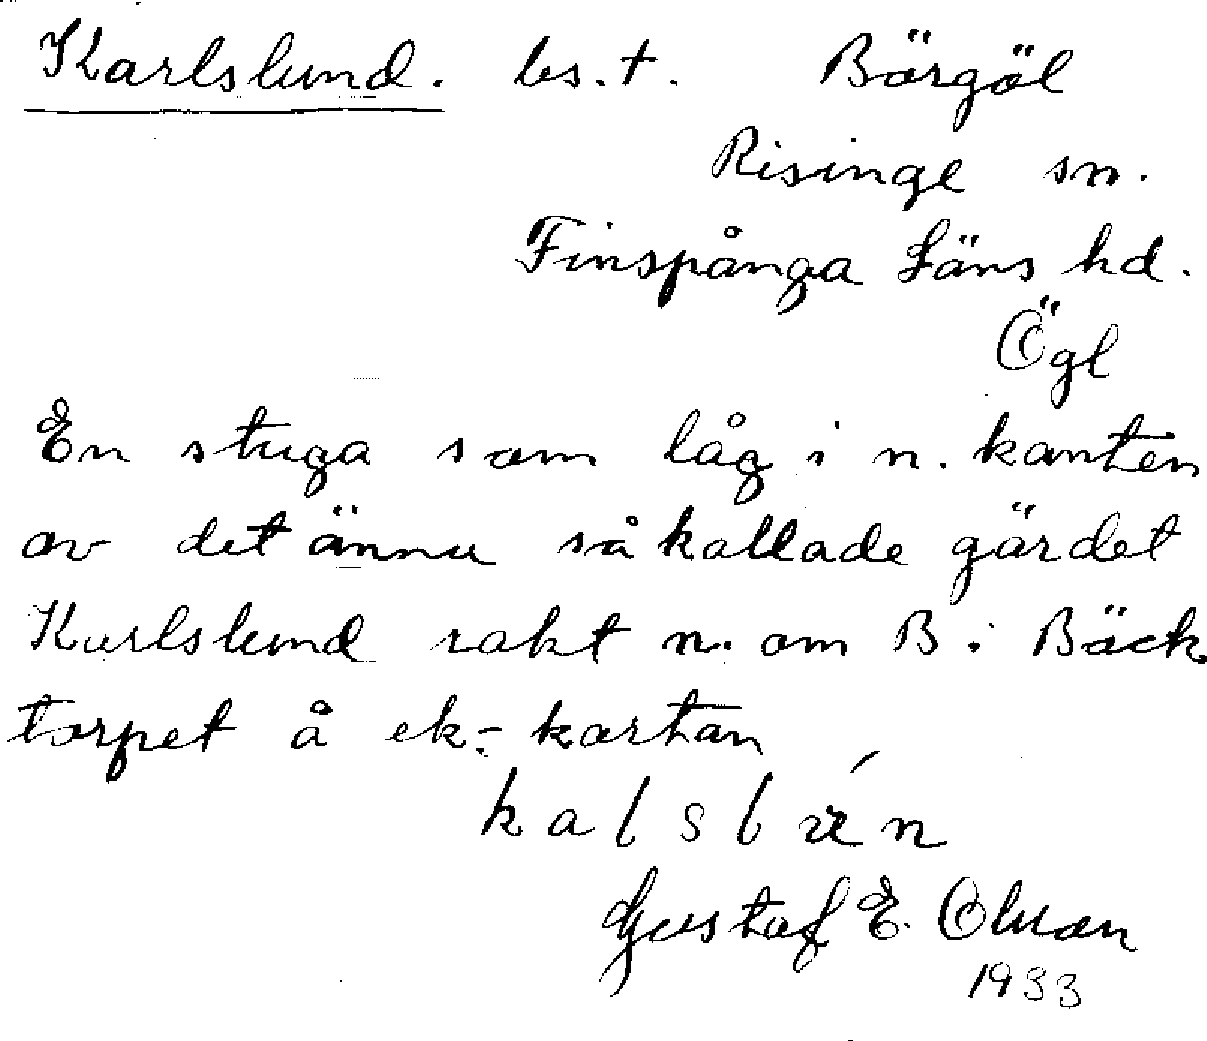 Karlslund. bs.t. Börgöl
Risinge sn.
Finspånga Läns hd.
Ögl
En stuga som låg i n. kanten
av det ännu så kallade gärdet
Karlslund rakt n. om B. i Bäck
torpet å ek.-kartan
Gustaf E.
1933